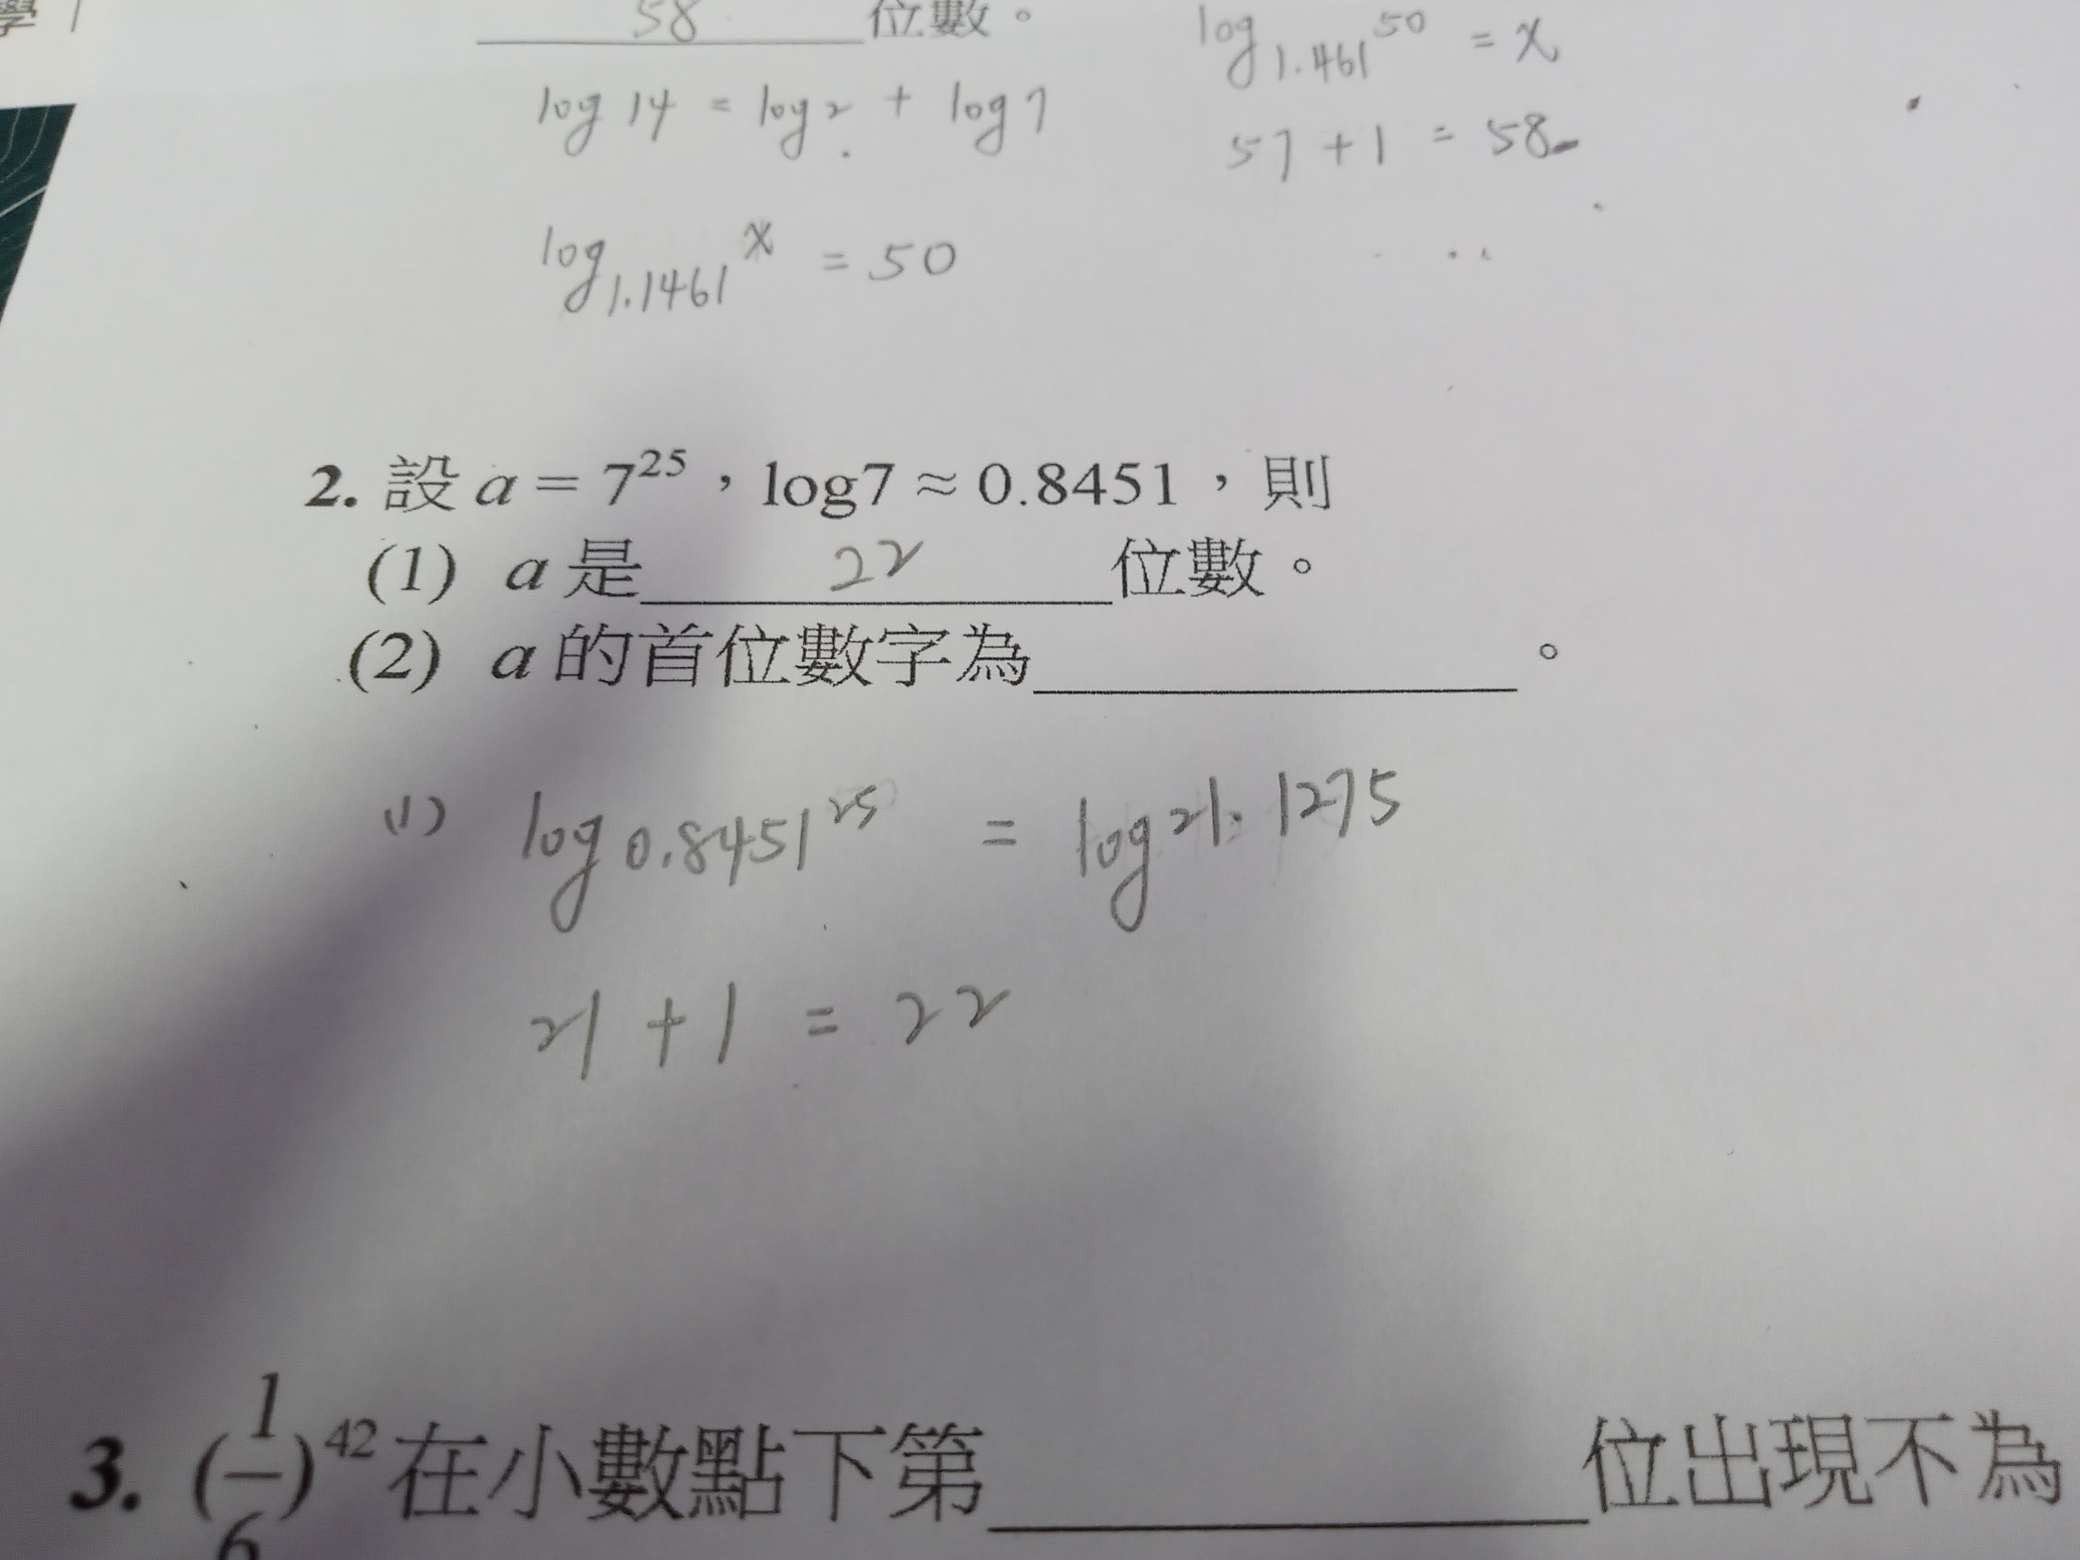 學 1
58 位數。
log 14 = log 2 + log 7
log 1.461^50 = x
57 + 1 = 58
log 1.1461^x = 50
2. 設 a = 7^25，log7 ≈ 0.8451，則
(1) a 是 22 位數。
(2) a 的首位數字為＿＿＿。
(1) log 0.8451^25 = log 21.1275
21 + 1 = 22
3. (1/6)^42 在小數點下第＿＿＿位出現不為